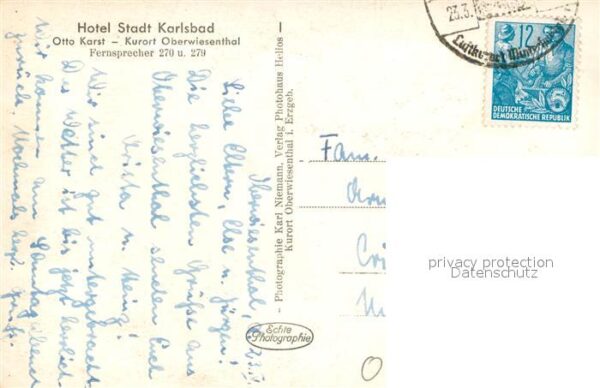 Hotel Stadt Karlsbad
Otto Karst – Kurort Oberwiesenthal
Fernsprecher 270 u. 279
Oberwiesenthal, 23.3.
Liebe Eltern, Else u. Jürgen!
Die herzlichsten Grüße aus
Oberwiesenthal senden Euch
Christa u. Heinz!
Wir sind gut untergebracht.
Das Wetter ist bis jetzt herrlich.
Wir kommen am Samstag abend
zurück. Nochmals herzl. Grüße.
Photographie Karl Niemann, Verlag Photohaus Helios
Kurort Oberwiesenthal i. Erzgeb.
Echte
Photographie
23.3.
Luftkurort
12
5
DEUTSCHE
DEMOKRATISCHE REPUBLIK
Fam.
privacy protection
Datenschutz